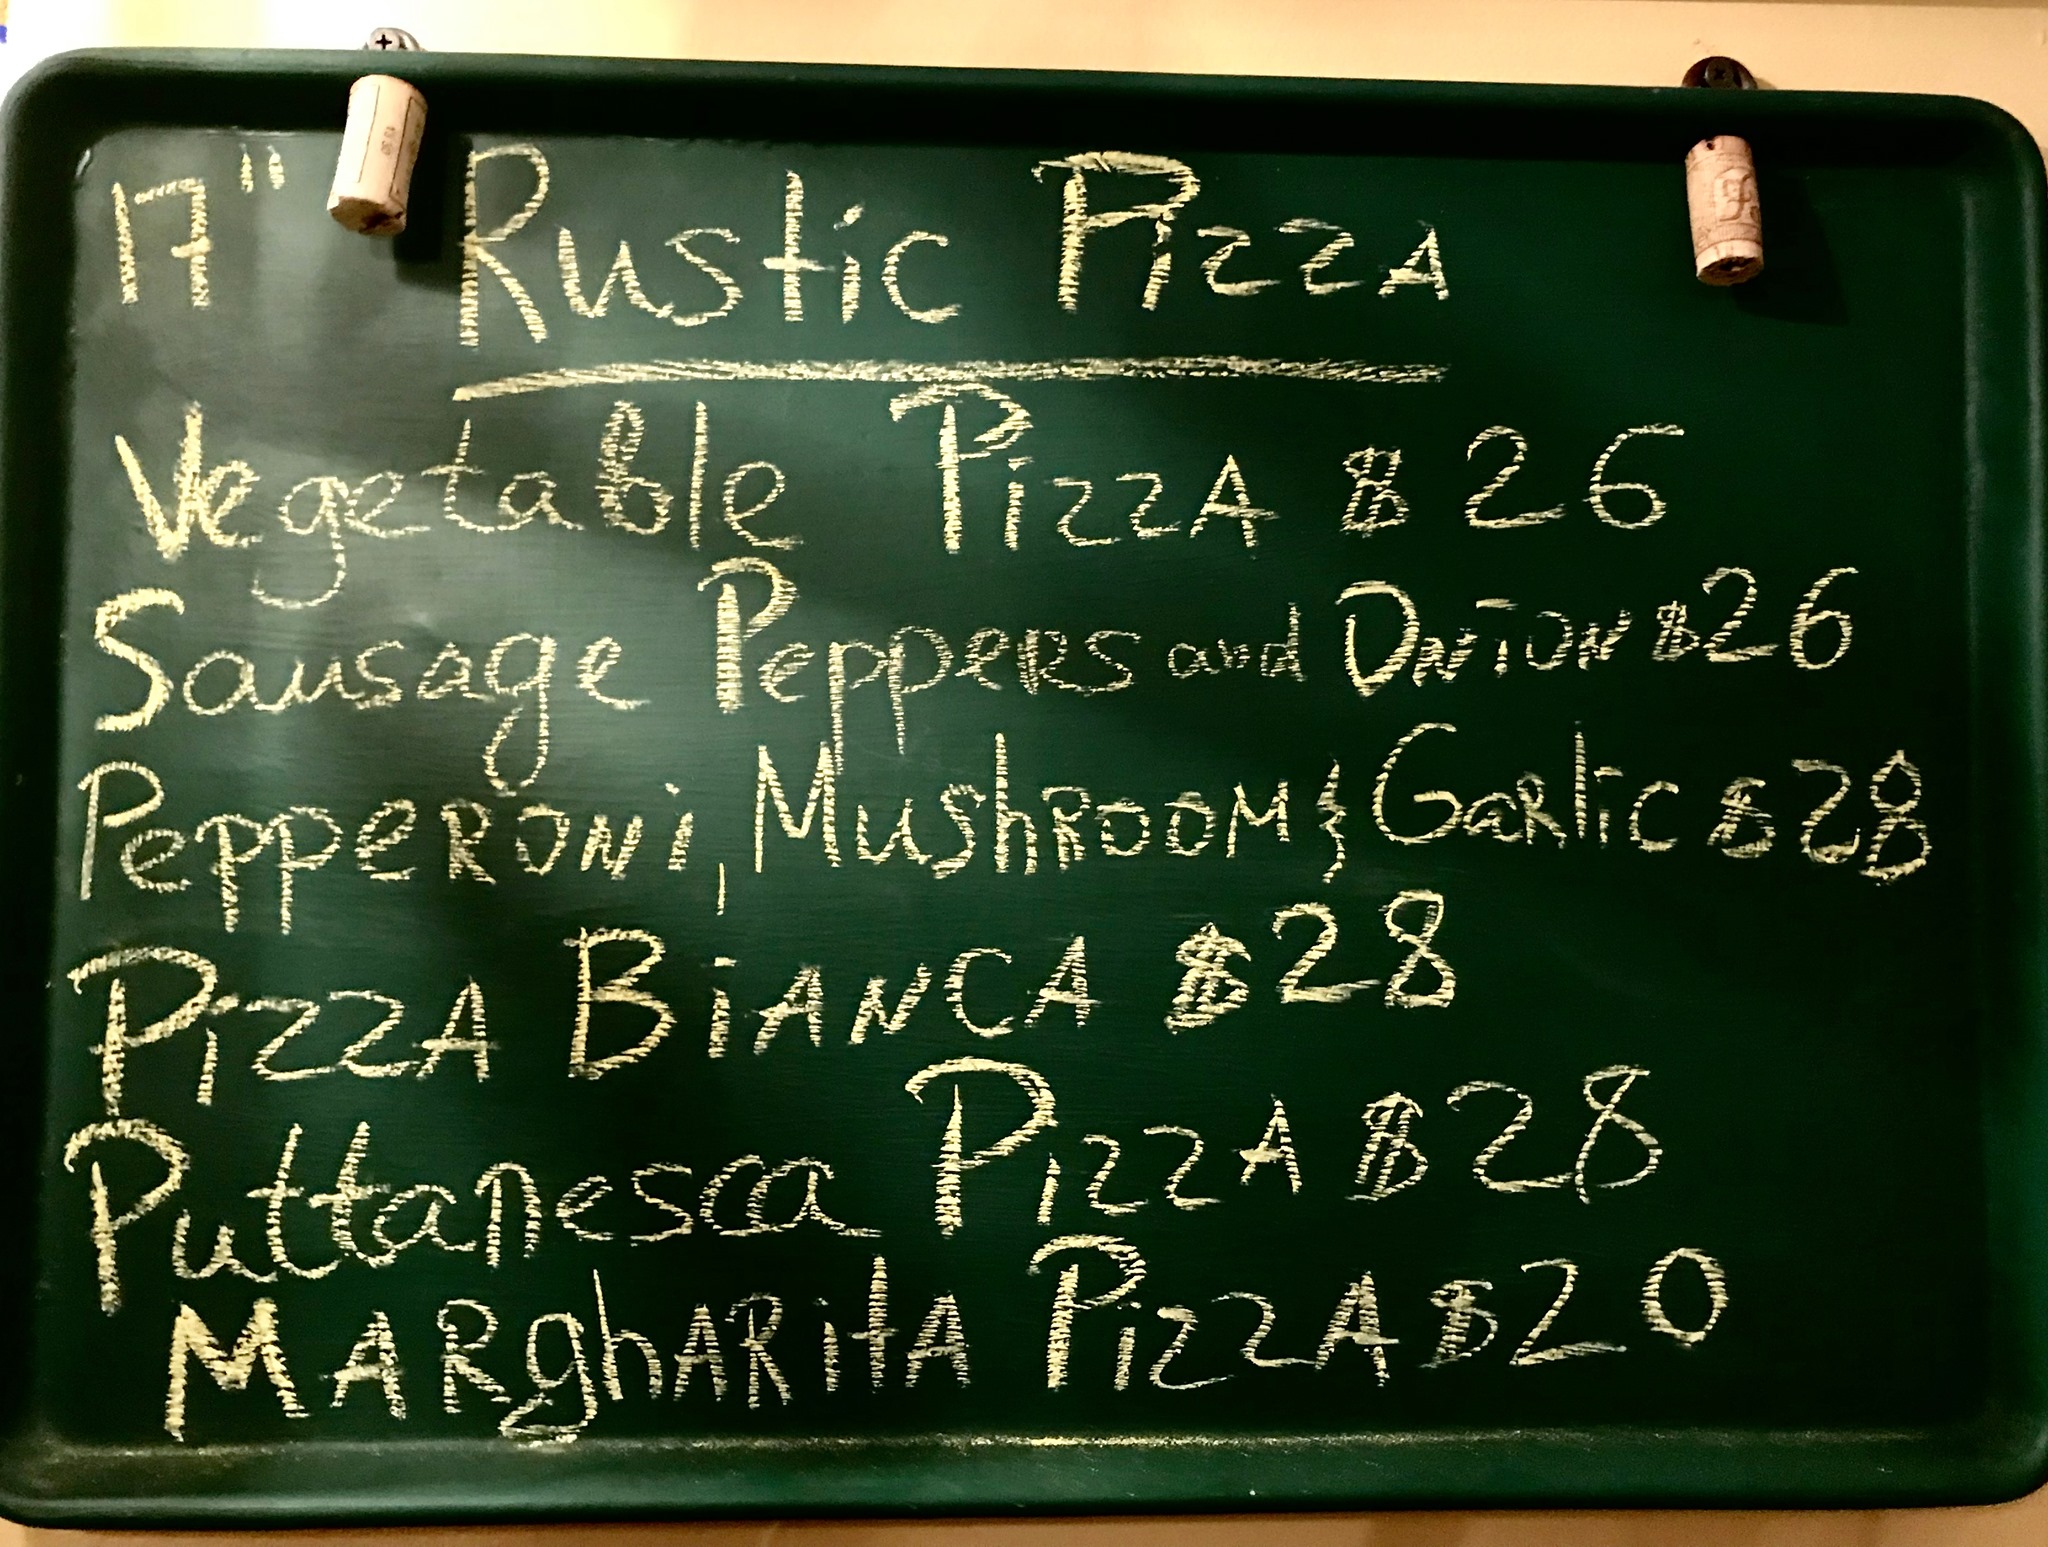 17" Rustic Pizza
Vegetable Pizza $26
Sausage Peppers and Onion $26
Pepperoni, Mushroom & Garlic $28
Pizza Bianca $28
Puttanesca Pizza $28
Margharita Pizza $20